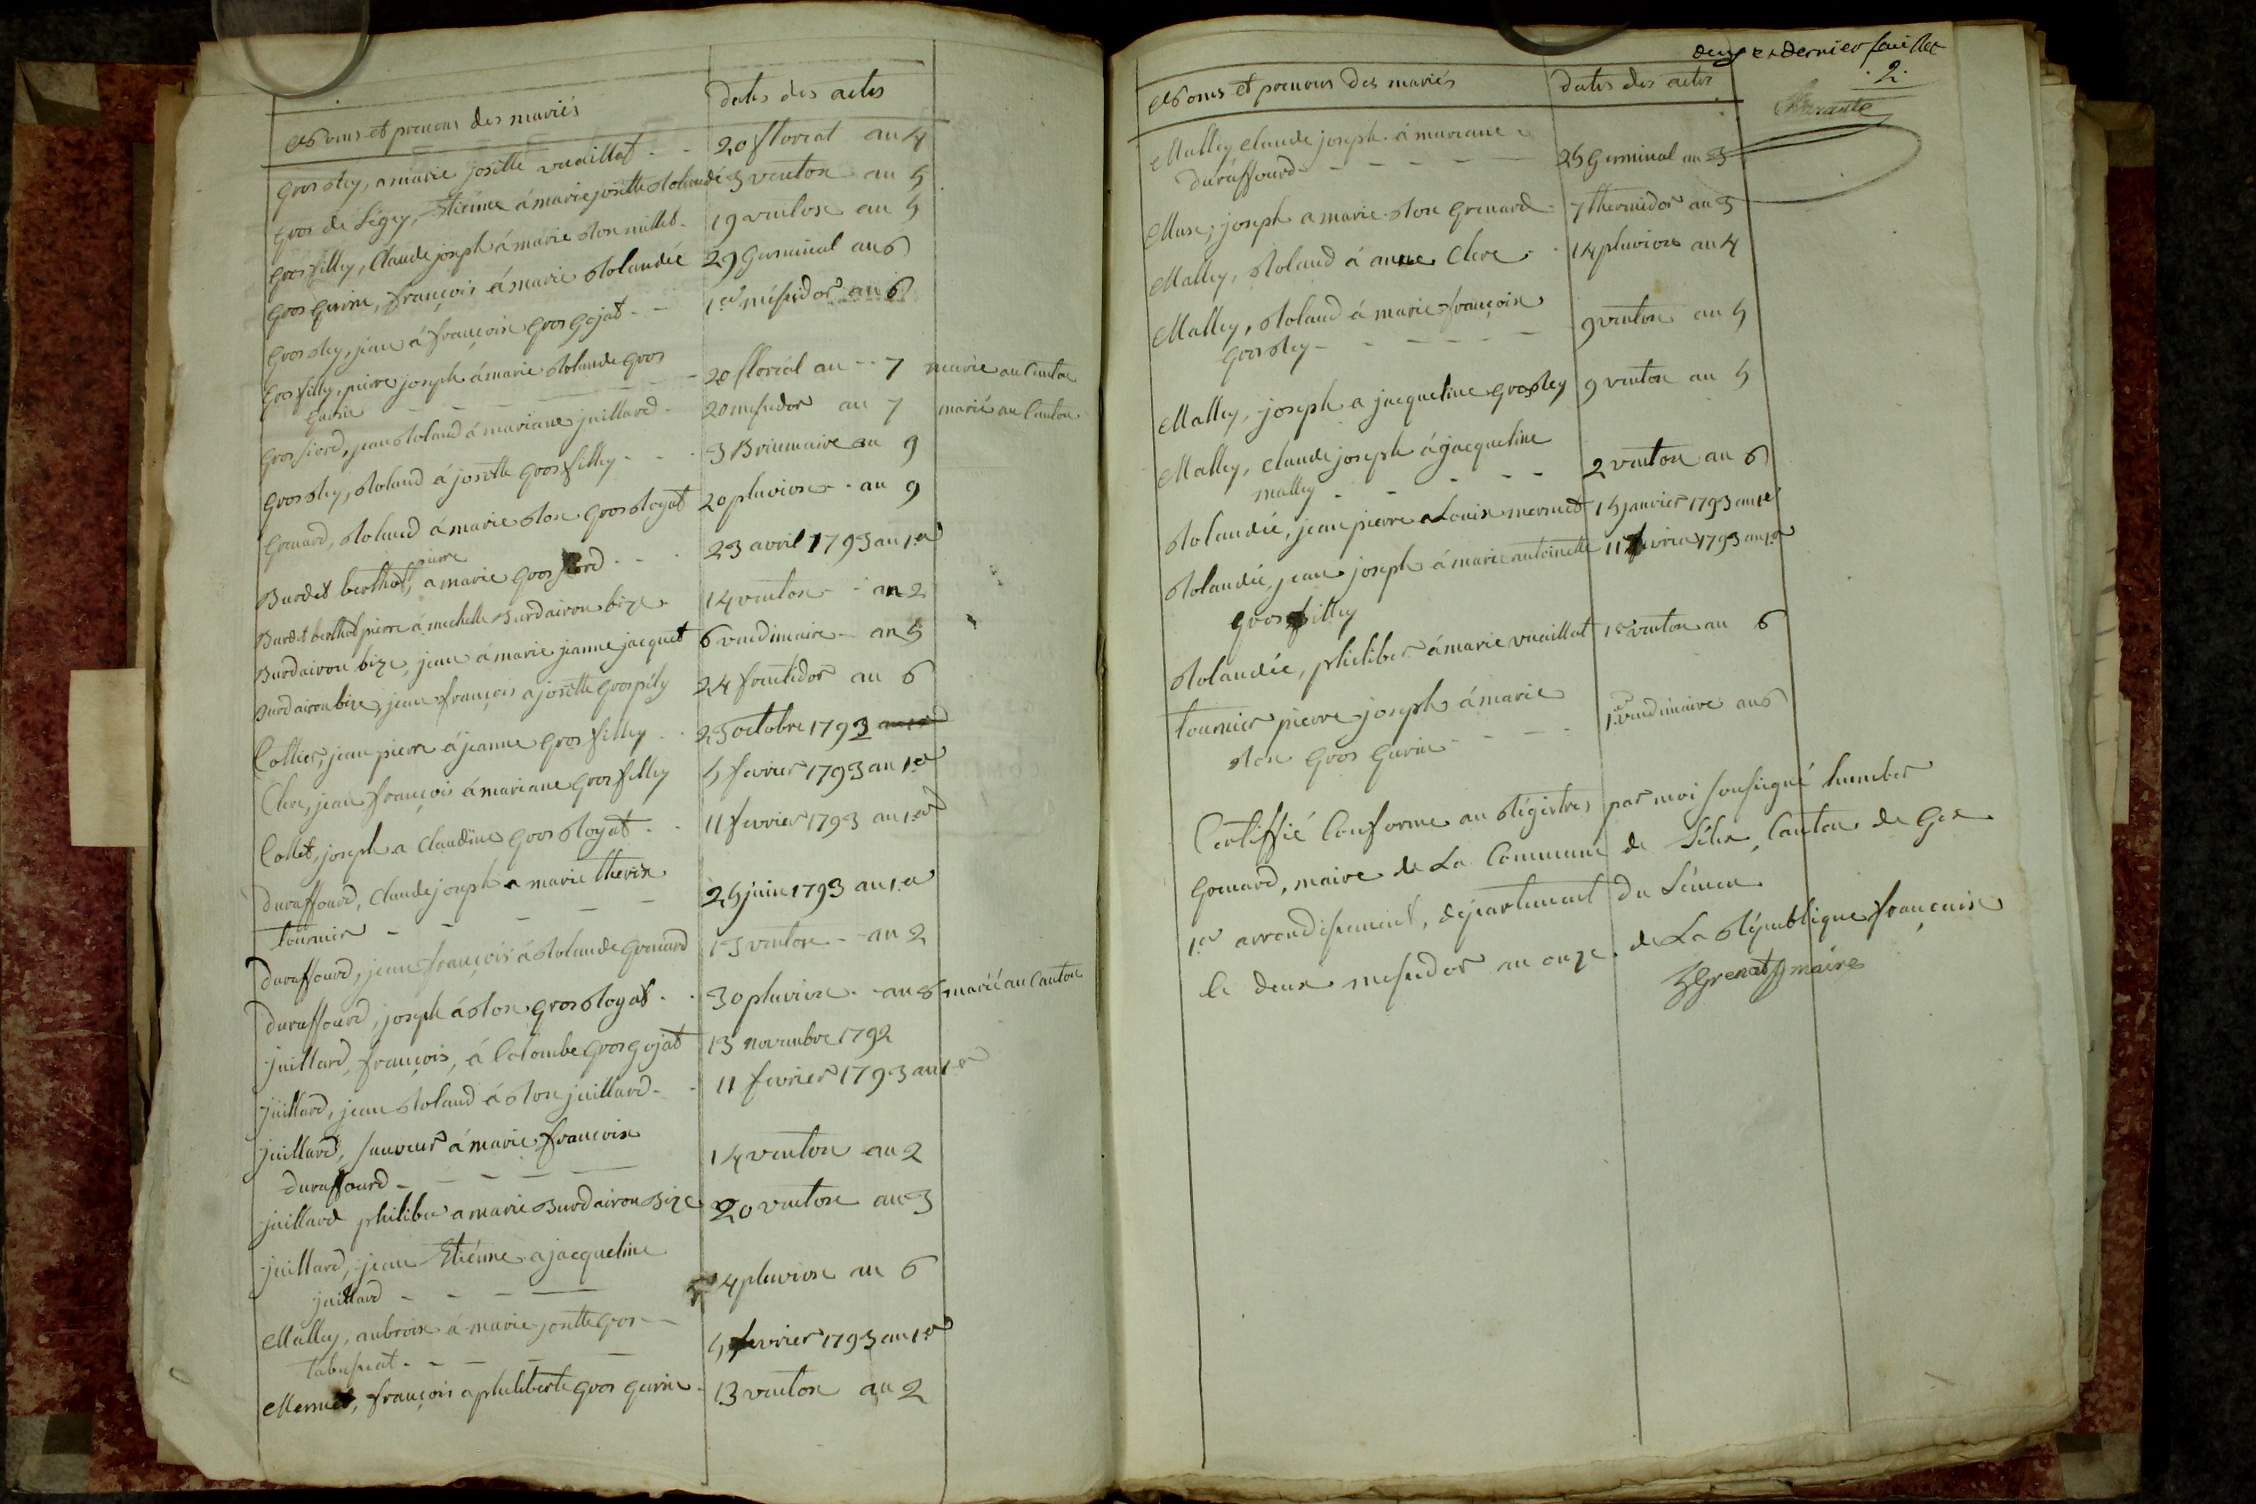 Noms et prenoms des mariés | dates des actes
Grosrey, a marie josette vuaillat - - 20 floreal an 4
Gros de Légey, Etienne á marie josette Rolandé 3 ventose an 5
Gros filley, Claude joseph á marie Rose millet - 19 ventose an 5
Gros Gurin, françois á marie Rolandée 29 Germinal an 6
Grosrey, jean á françoise Gros Gojat - - 1er messidor an 6
Gros filley, pierre joseph á marie Rolande Gros
Gurin - - - - - 20 floréal an - - 7 marié au Canton
Gros fiord, jean Roland á mariane juillard - 20 messidor an 7 marié au Canton
Grosrey, Roland á josette Gros filley - - - 3 Brumaire an 9
Grenard, Roland á marie Rose Gros Royat 20 pluviose - - an 9
pierre
Burdet berthet, a marie Gros fiord - - - 23 avril 1793 an 1.er
Burdet berthet pierre á michelle Burdairon bize - 14 ventose - - an 2
Burdairon bize, jean á marie jeanne jacquet 6 vendimaire - an 5
Burdairon bize, jean françois a josette Gros fily 24 fructidor an 6
Cottier, jean pierre á jeanne Gros filley - - 25 octobre 1793
Clere, jean françois á mariane Gros filley 5 fevrier 1793 an 1.er
Collet, joseph a Claudine Gros Royat - - 11 fevrier 1793 an 1.er
Duraffourd, Claude joseph a marie therese
Tournier - - - - - 25 juin 1793 an 1.er
Duraffourd, jean françois á Rolande Grenard 13 ventose - - an 2
Duraffourd, joseph á Rose Gros Royat - - 30 pluviose - - an 8 marié au Canton
juillard, françois, á Colombe Gros Gojat 13 novembre 1792
juillard, jean Roland á Rose juillard - - 11 fevrier 1793 an 1.er
juillard, sauveur á marie françoise
duraffourd - - - - - 14 ventose an 2
juillard philiber a marie Burdairon Bize 20 ventose an 3
juillard, jean Etiénne a jacqueline
juillard - - - - 4 pluviose an 6
Malley, anbroise á marie josette Gros -
- - - - - 5 fevrier 1793 an 1.er
Mermet, françois a philiberte Gros Gurin - 13 ventose an 2
deux et dernier feuillet
. 2 .
Noms et prenoms des mariés | dates des actes
Malley Claude joseph á mariane
Duraffourd - - - - - 25 Germinal an 3
Muse, joseph a marie Rose Grenard - 7 thermidor an 3
Malley, Roland á anne Clere - - 14 pluviose an 4
Malley, Roland á marie françoise
Grosrey - - - - - - 9 ventose an 5
Malley, joseph a jacqueline Grosrey 9 ventose an 5
Malley, Claude joseph á jacqueline
malley - - - - - 2 ventose an 6
Rolandée, jean pierre a Louise mermet 15 janvier 1793 an 1er
Rolandée, jean joseph á marie antoinette 11 fevrier 1793 an 1.er
Gros filley
Rolandée, philiber á marie vuaillat 1er ventose an 6
Tournier pierre joseph á marie
Rose Gros Gurin - - - - 1.er vendimaire an 6
Certiffié Conforme au Régistres par moi soussigné humber
Grenard, maire de La Commune de Lélex, Canton de Gex
1.er arrondissement, département du Léman
le deux messidor an onze de La République françaisse
Grenard maire